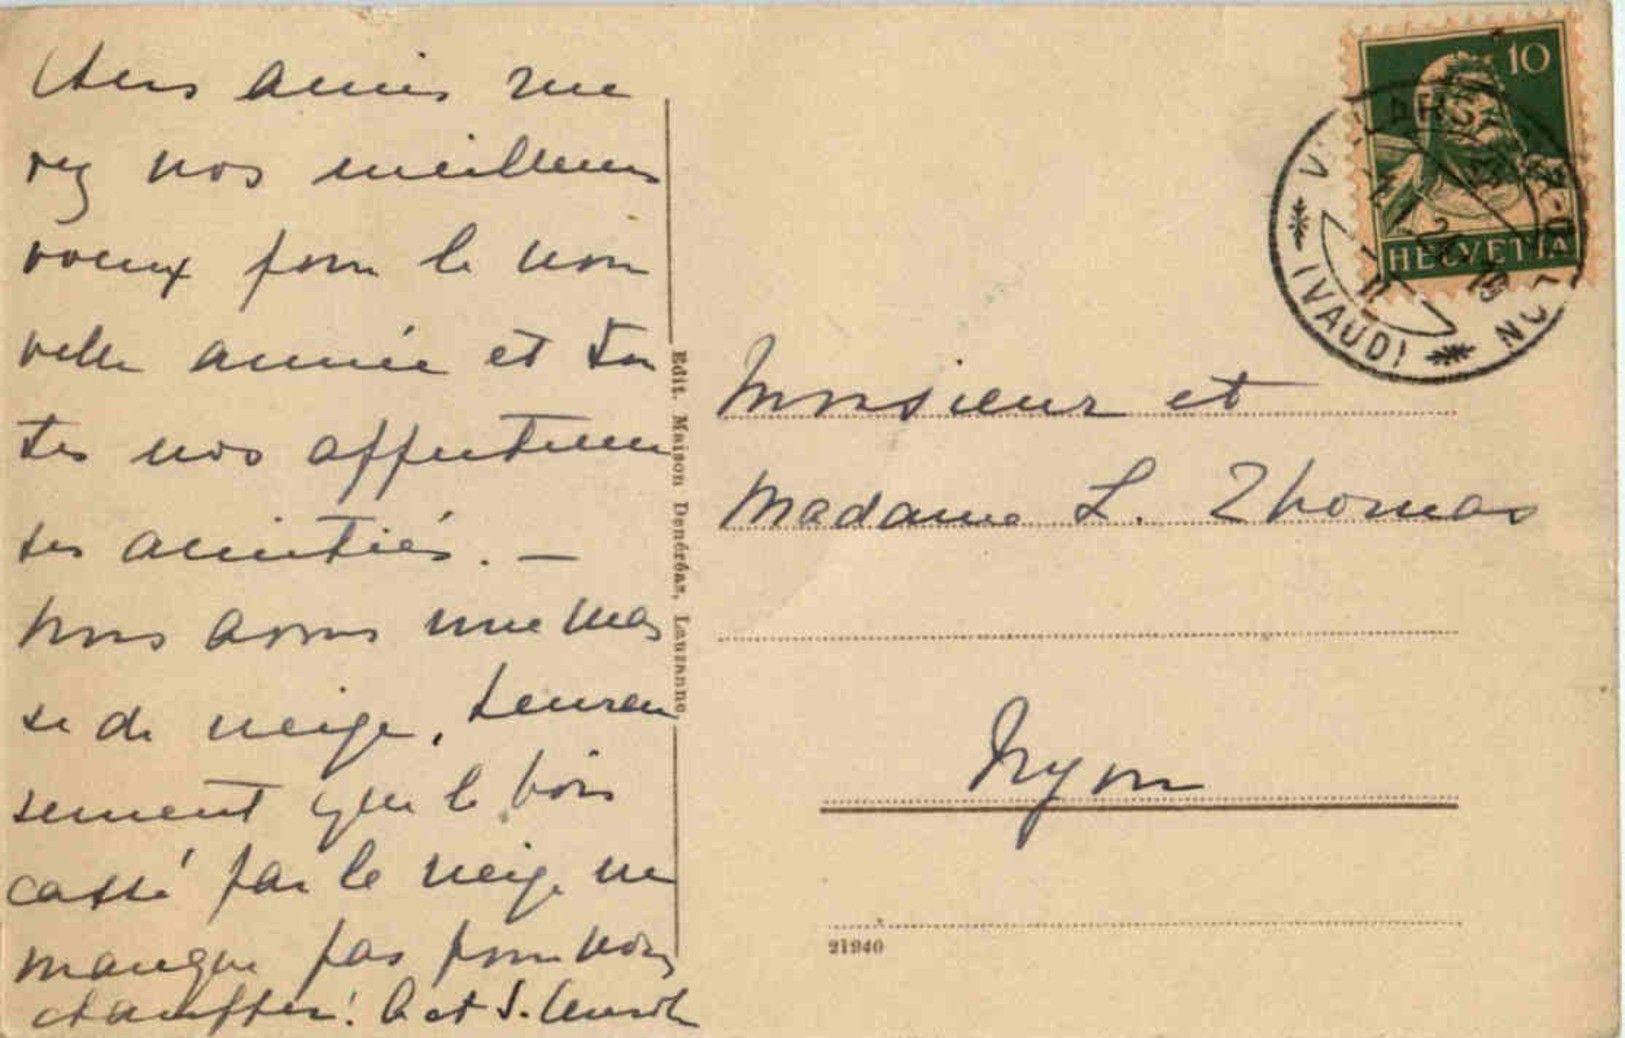 Chers amis rece
vez nos meilleurs
voeux pour la nou
velle année et tou
tes nos affectueu
ses amitiés. —
Nous avons une mas
se de neige, heureu
sement que le bois
cassé par la neige ne
manque pas pour nous
chauffer! A et J.
Edit. Maison Denéréaz, Lausanne
10
HELVETIA
(VAUD)
Monsieur et
Madame L. Thomas
Nyon
21940